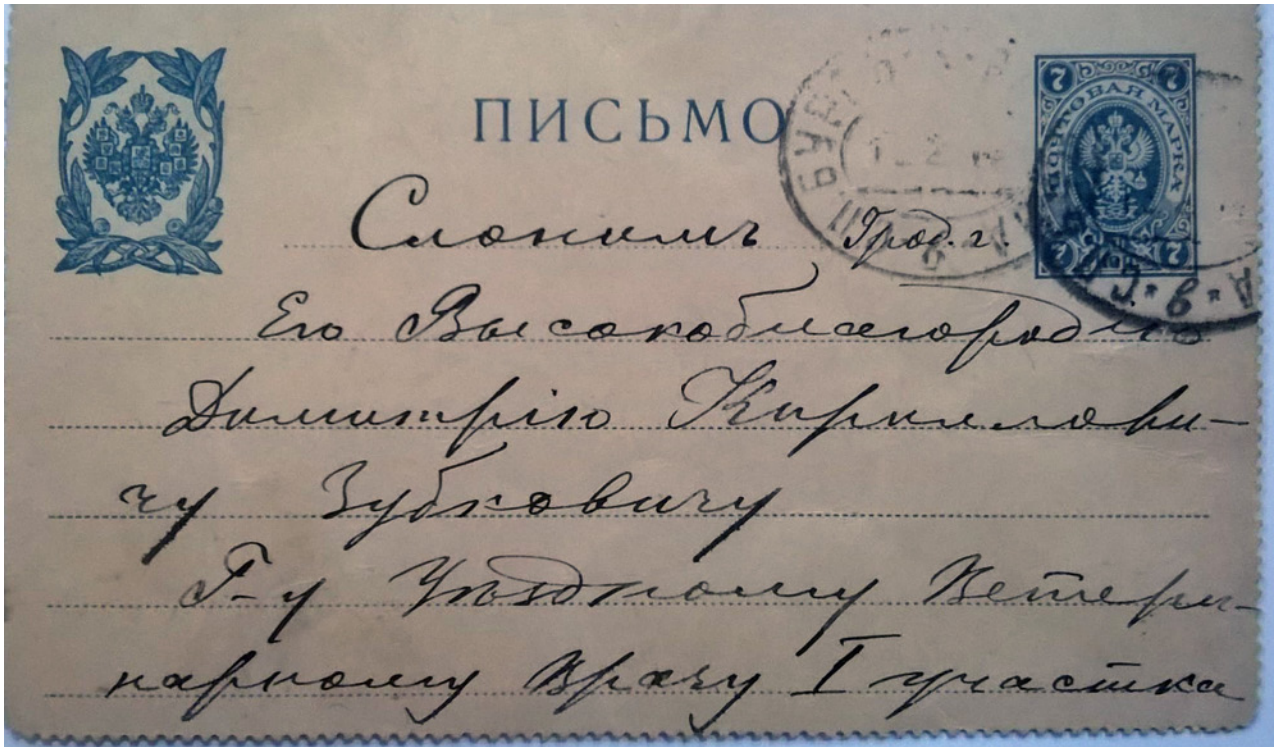 ПИСЬМО
7 7
ПОЧТОВАЯ МАРКА
7 7
Слонимъ Грод. г.
Его Высокоблагородію
Димитрію Кириллови-
чу Зубковичу
Г-у Уѣздному Ветери-
нарному Врачу I участка